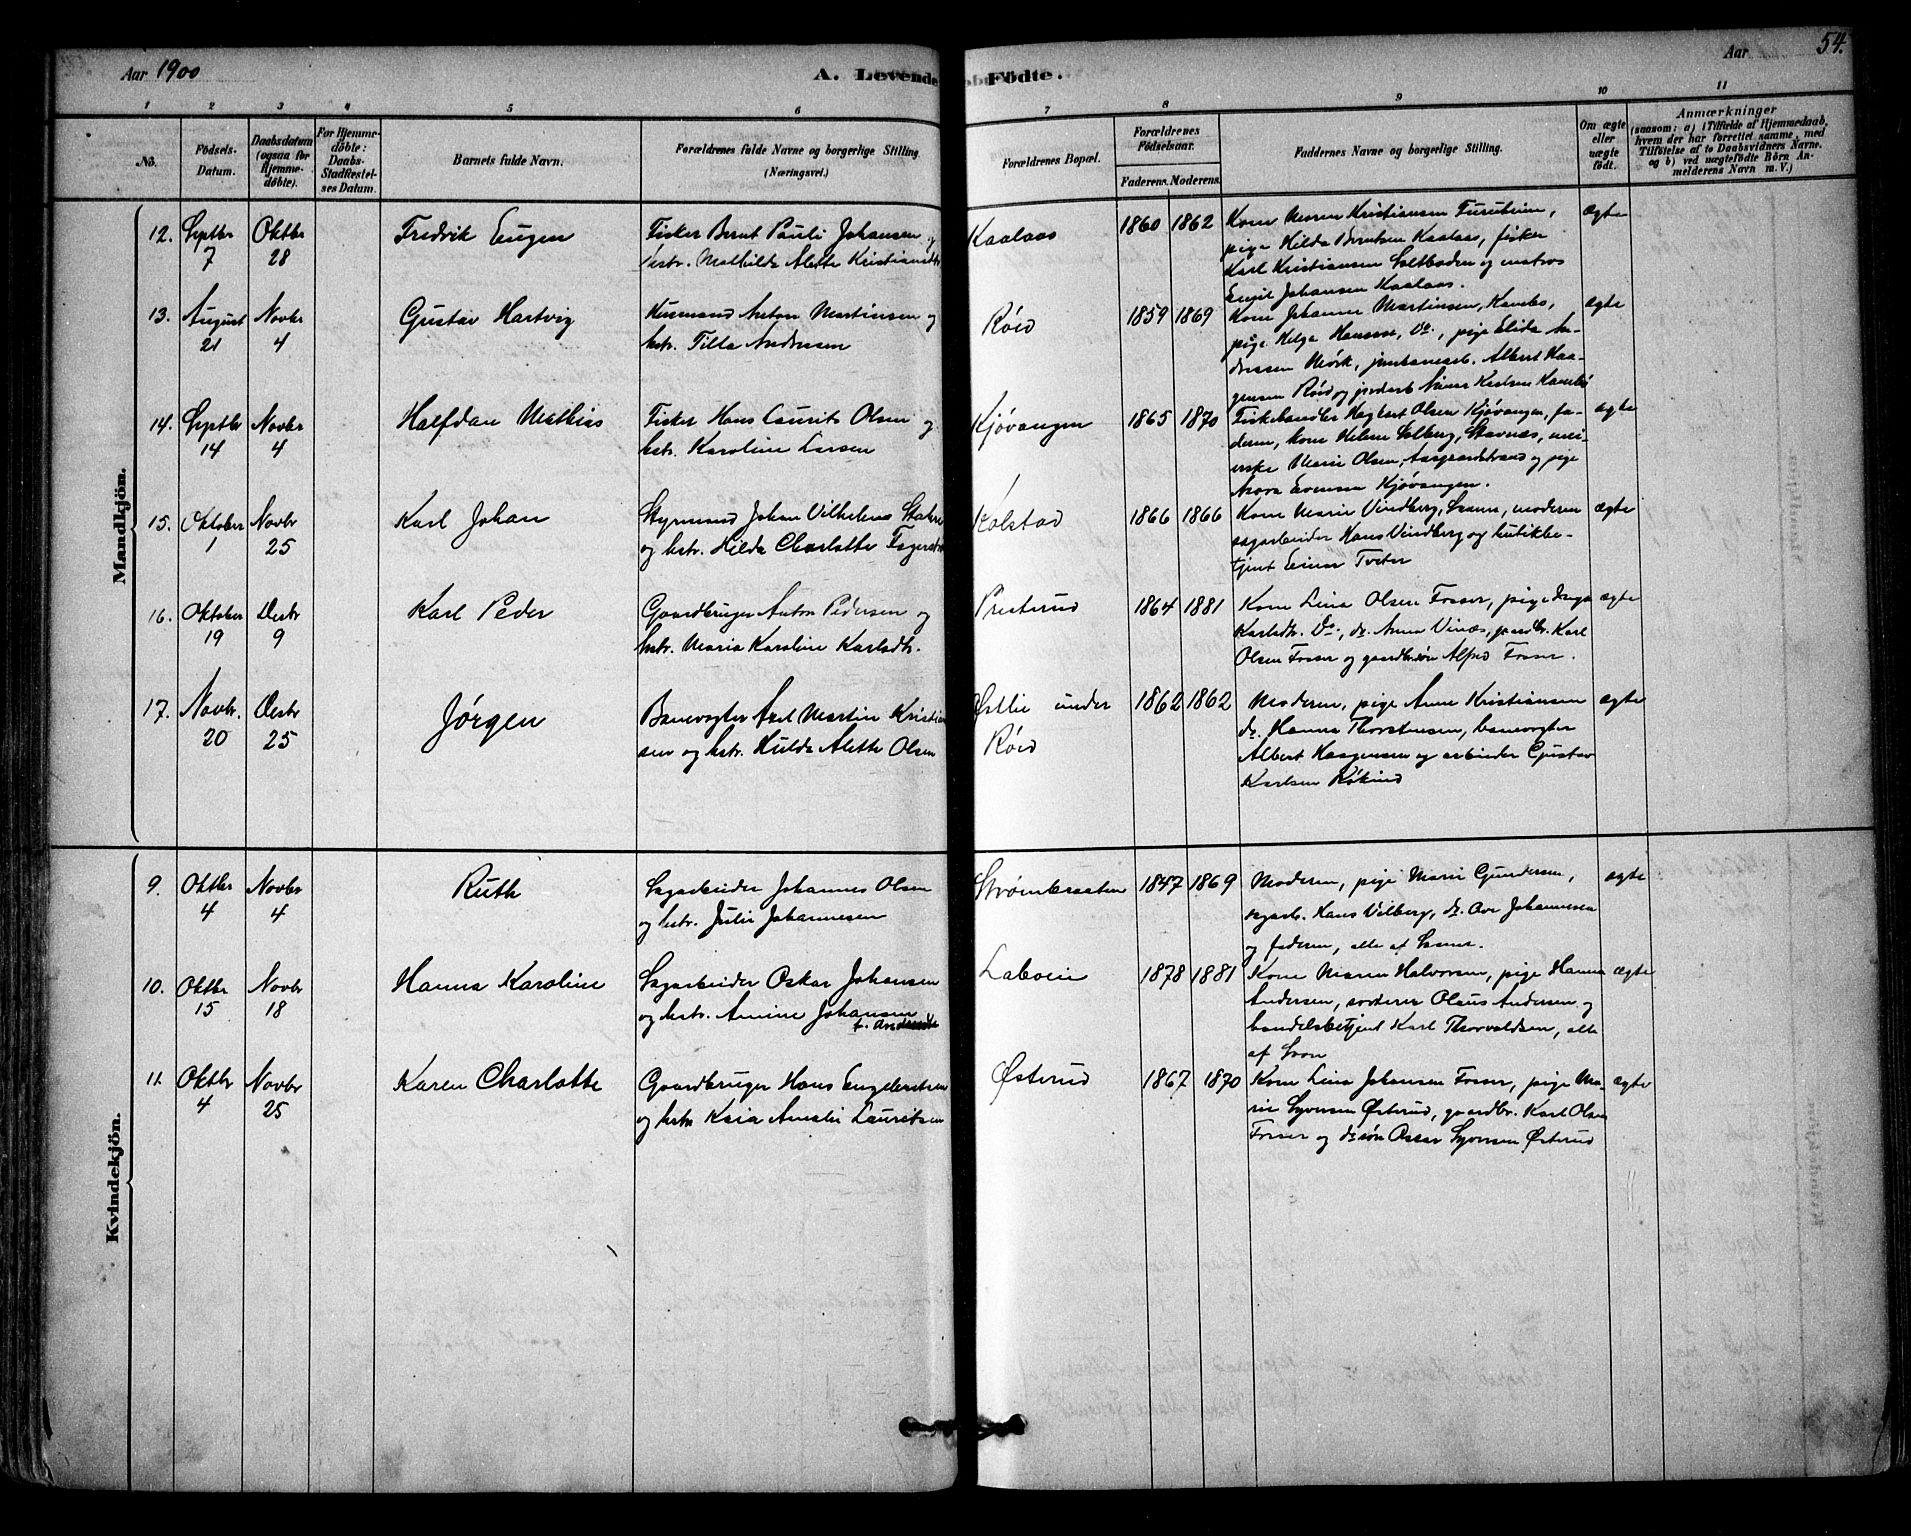 Aar 1900
A. Levende Födte.
Aar
54.
1 2 3 4 5 6 7 8 9 10 11
No.
Födsels-
Datum.
Daabsdatum
(ogsaa for
Hjemme-
döbte).
For Hjemme-
döbte:
Daabs-
Stadfæstel-
ses Datum.
Barnets fulde Navn.
Forældrenes fulde Navne og borgerlige Stilling
(Næringsvei.)
Forældrenes Bopæl.
Forældrenes
Födselsaar.
Faderens. Moderens.
Faddernes Navne og borgerlige Stilling.
Om ægte
eller
uægte
født.
Anmærkninger
(saasom: a) i Tilfælde af Hjemmedaab,
hvem der har forrettet samme, med
Tilföielse af to Daabsvidners Navne.
og b) ved uægtefödte Börn An-
melderens Navn m. V.)
Mandkjön.
12. Septbr 7 Oktbr 28 Fredrik Eugen
Fisker Bernt Pauli Johansen og
hstr. Mathilde Alette Kristiansdtr
Kaalaas 1860 1862
Kone Maren Kristiansen Furuheim,
pige Hilda Berntsen Kaalaas, fisker
Karl Kristiansen Saltboden og matros
Emil Johansen Kaalaas.
ægte
13. August 21 Novbr 4 Gustav Hartvig
Husmand Anton Martinsen og
hstr. Tilla Andersen
Röed 1859 1869
Kone Johanne Martinsen, Kambo,
pige Helga Hansen, Do., pige Elida An-
dresen Mörk, jernbanearb. Albert Haa-
gensen Röed og jordarb Karlsen Kambo
ægte
14. Septbr 14 Novbr 4 Halfdan Mathias
Fisker Hans Laurits Olsen og
hstr. Karoline Larsen
Kjøvangen 1865 1870
Fiskehandler Hagbart Olsen Kjøvangen, fa-
deren, kone Helene Solberg, Stavnæs, mei-
erske Marie Olsen, Aasgaardstrand og pige
Evensen Kjøvangen.
ægte
15. Oktober 1 Novbr 25 Karl Johan
Styrmand Johan Vilhelm
og hstr. Hilda Charlotte
Kolstad 1866 1866
Kone Marie Vindberg, Soner, moderen
sagarbeider Hans Vindberg og butikbe-
tjent Einar Tveter
ægte
16. Oktober 19 Desbr 9 Karl Peder
Gaardbruger Anton Pedersen og
hstr. Maria Karoline Karlsdtr.
Presterud 1864 1881
Kone Lina Olsen Fosser, pige Inga
Karlsdtr. Do., do. Anna Vinæs, gaardbr. Karl
Olsen Fosser og gaardbr.søn Alfred Fosser.
ægte
17. Novbr. 20 Desbr 25 Jörgen
Banevogter Axel Martin Kristian-
sen og hstr. Hulda Alette Olsen
Østlie under
Röed
1862 1862
Moderen, pige Anne Kristiansen
do. Hanna Thorstensen, banevogter
Albert Haagensen og arbeider Gustav
Karlsen Rökind
ægte
Kvindekjön.
9. Oktbr 4 Novbr 4 Ruth
Sagarbeider Johannes Olsen
og hstr. Julie Johannesen
Strömbraaten 1847 1869
Moderen, pige Marie Gundersen,
sagarb. Hans Vilberg, do. Ove Johannesen
og faderen, alle af Soner.
ægte
10. Oktbr 15 Novbr 18 Hanna Karoline
Sagarbeider Oskar Johansen
og hstr. Amine Johansen
f. Andersen
Labo 1878 1881
Kone Maren Halvorsen, pige Hanna
Andersen, sorterer Olaus Andersen og
handelsbetjent Karl Thorvaldsen, alle
af Soon
ægte
11. Oktbr 4 Novbr 25 Karen Charlotte
Gaardbruger Hans Engebretsen
og hstr Kaia Amalie Lauritsen
Østerud 1867 1870
Kone Lina Johansen Fosser, pige Ma-
rie Syversen Østerud, gaardbr. Karl Olsen
Fosser og do søn Oscar Syversen Østerud
ægte